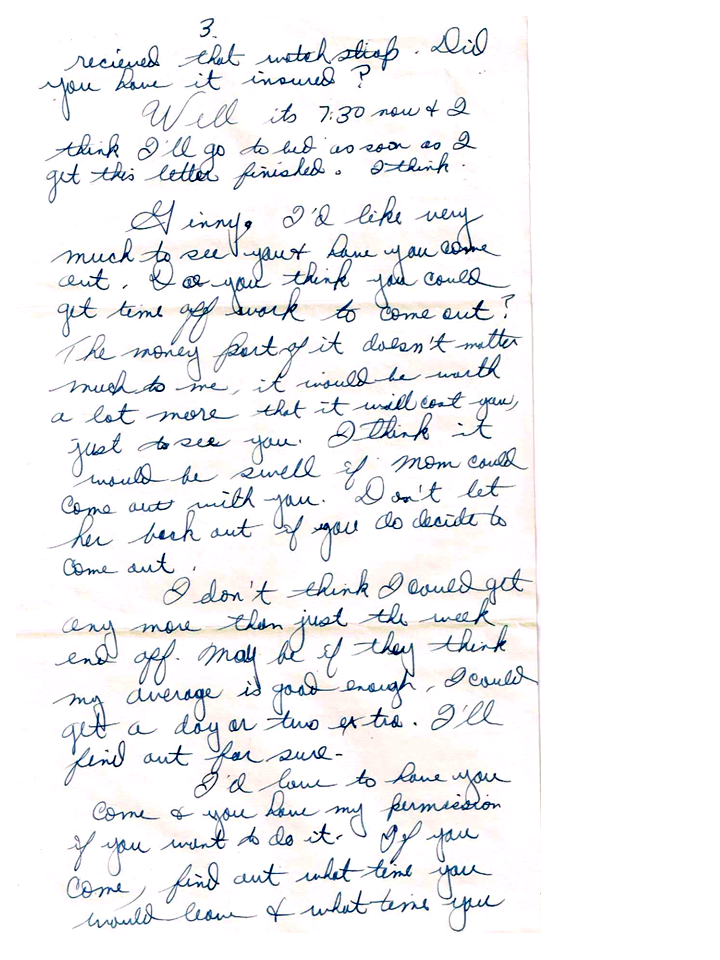 3.
recieved that watch strap. Did
you have it insured?
Well its 7:30 now & I
think I'll go to bed as soon as I
get this letter finished. I think.
Ginny, I'd like very
much to see you & have you come
out. Do you think you could
get time off work to come out?
The money part of it doesn't matter
much to me, it would be worth
a lot more that it will cost you,
just to see you. I think it
would be swell if Mom could
come out with you. Don't let
her back out if you do decide to
come out.
I don't think I could get
any more than just the week
end off. May be if they think
my average is good enough, I could
get a day or two extra. I'll
find out for sure-
I'd love to have you
come & you have my permission
if you want to do it. If you
come, find out what time you
would leave & what time you